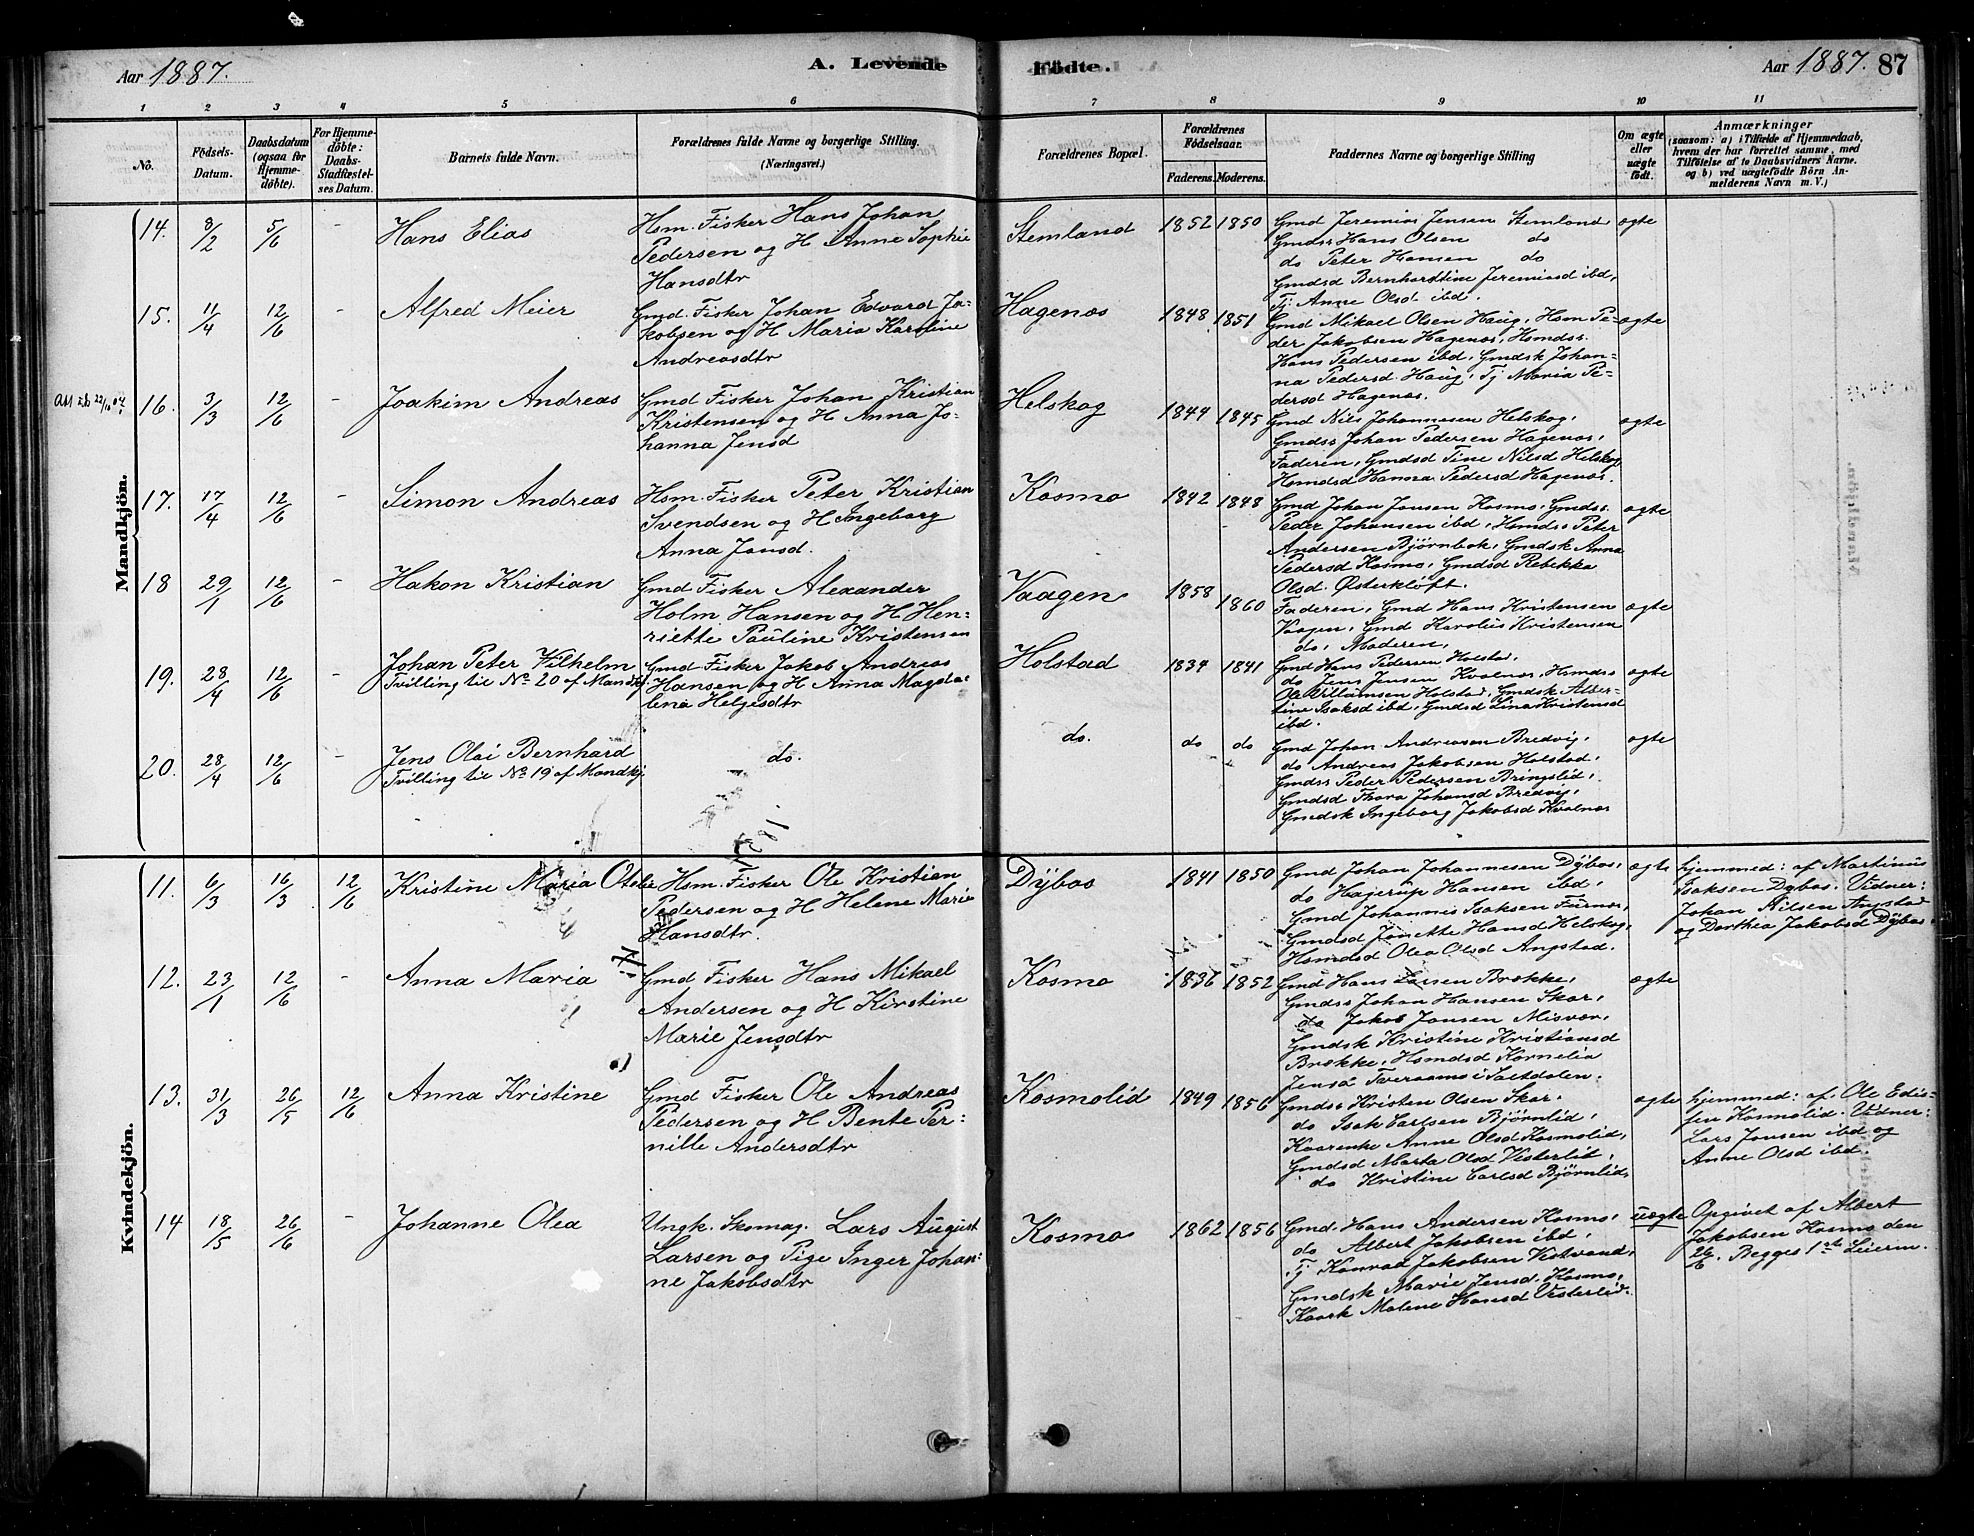 Aar 1887.
A. Levende
Fødte.
Aar 1887. 87
1 2 3 4 5 6 7 8 9 10 11
No.
Födsels-
Datum.
Daabsdatum
(ogsaa for
Hjemme-
döbte).
For Hjemme-
döbte:
Daabs-
Stadfæstel-
ses Datum.
Barnets fulde Navn.
Forældrenes fulde Navne og borgerlige Stilling.
(Næringsvei.)
Forældrenes Bopæl.
Forældrenes
Födselsaar.
Faderens. Moderens.
Faddernes Navne og borgerlige Stilling
Om ægte
eller
uægte
födt.
Anmærkninger
(saasom: a) i Tilfælde af Hjemmedaab,
hvem der har forrettet samme, med
Tilföielse af to Daabsvidners Navne.
og b) ved uægtefödte Börn An-
melderens Navn m. V.)
Mandkjön.
14. 8/2 5/6 - Hans Elias
Hsm. Fisker Hans Johan
Pedersen og H Anne Sophie
Hansdtr
Stemland 1852 1850
Gmd Jeremias Jensen Stemland
Gmdss Hans Olsen do
do Peter Hansen do
Gmdsd Bernhardtine Jeremiasd ibd,
Tj. Anne Olsd ibd.
ægte
15. 11/4 12/6 - Alfred Meier
Gmd. Fisker Johan Edvard Ja-
kobsen og H Maria Karoline
Andreasdtr
Hagenæs 1848 1851
Gmd Mikael Olsen Haug, Hsm Pe-
der Jakobsen Hagenæs, Hsmdss.
Hans Pedersen ibd, Gmdsk Johan-
na Pedersd. Haug, Tj Maria Pe-
dersd Hagenæs.
ægte
16. 3/3 12/6 - Joakim Andreas
Gmd Fisker Johan Kristian
Kristensen og H Anna Jo-
hanna Jensd
Helskog 1844 1845
Gmd Nils Johannesen Helskog,
Gmdss Johan Pedersen Hagenæs,
Faderen, Gmdsd Tine Nilsd Helskog
Hsmdsd Hanna Pedersd Hagenæs.
ægte
17. 17/4 12/6 - Simon Andreas
Hsm. Fisker Peter Kristian
Svendsen og H Ingeborg
Anna Jonsd.
Kosmo 1842 1848
Gmd Johan Jonsen Kosmo, Gmdss.
Peder Johansen ibd, Hsmdss Peter
Andersen Bjørnbak, Gmdsk Anna
Pedersd Kosmo, Gmdsd Rebekka
Olsd. Østerkløft.
ægte
18 29/1 12/6 - Hakon Kristian
Gmd Fisker Alexander
Holm Hansen og H Hen-
riette Pauline Kristensen
Vaagen 1858 1860
Faderen, Gmd Hans Kristensen
Vaagen, Gmd Karolius Kristensen
do, Moderen,
ægte
19. 28/4 12/6 - Johan Peter Vilhelm
Tvilling til No 20 af Mandkj.
Gmd Fisker Jakob Andreas
Hansen og H Anna Magda-
lena Helgesdtr
Holstad 1834 1841
Gmd Hans Pedersen Holstad,
do Jens Jensen Kvalnæs, Hsmdss
Ole Villumsen Holstad, Gmdsk Alber-
tine Isaksd ibd, Gmdsd Lina Kristensd
ibd.
ægte
20. 28/4 12/6 - Jens Olai Bernhard
Tvilling til No 19 af Mandkj.
do. do. do do
Gmd Johan Andreasen Bredvig,
do Andreas Jakobsen Holstad,
Gmdss Peder Pedersen Bringslid,
Gmdsd Thora Johansd Bredvig,
Gmdsk Ingeborg Jakobsd Kvalnæs
ægte
Kvindekjön.
11. 6/3 16/3 12/6 Kristine Maria Otelie
Hsm. Fisker Ole Kristian
Pedersen og H Helene Marie
Hansdtr.
Dybos 1841 1850
Gmd Johan Johannesen Dybos,
do Hagerup Hansen ibd,
Gmd Johannis Isaksen Furnæs,
Gmdsd Jonette Hansd Helskog,
Hsmdsd Olea Olsd Angstad.
ægte
hjemmed: af Martinus
Isaksen Dybos. Vidner:
Johan Nilsen Angstad
og Dorthea Jakobsd Dybos.
12. 23/1 12/6 - Anna Maria
Gmd Fisker Hans Mikael
Andersen og H Kirstine
Marie Jensdtr
Kosmo 1836 1852
Gmd Hans Larsen Brække,
Gmdss Johan Hansen Skar,
do Jakob Jonsen Misvær,
Gmdsk Kristine Kristiansd
Brække, Hsmdsd Kornelia
Jensd Tveraamo i Saltdalen.
ægte
13. 31/3 26/5 12/6 Anna Kristine
Gmd Fisker Ole Andreas
Pedersen og H Bente Per-
nille Andersdtr
Kosmolid 1849 1856
Gmdss Kristen Olsen Skar,
do Isak Carlsen Bjørnlid,
Kaarenke Anne Olsd Kosmolid,
Gmdsd Marta Olsd Vesterlid,
do Kristine Carlsd Bjørnlid,
ægte
hjemmed: af Ole Edis-
sen Kosmolid. Vidner:
Lars Jonsen ibd og
Anne Olsd ibd.
14 18/5 26/6 - Johanne Olea
Ungk. Skomag. Lars August
Larsen og Pige Inger Johan-
ne Jakobsdtr
Kosmo 1862 1856
Gmd. Hans Andersen Kosmo,
do Albert Jakobsen ibd,
Tj Konrad Jakobsen Vestvand,
Gmdsk Marie Jensd. Kosmo,
Kaark Malene Hansd Vesterlid.
uægte
Opgivet af Albert
Jakobsen Kosmo den
26/6. Begges 1ste Leierm.